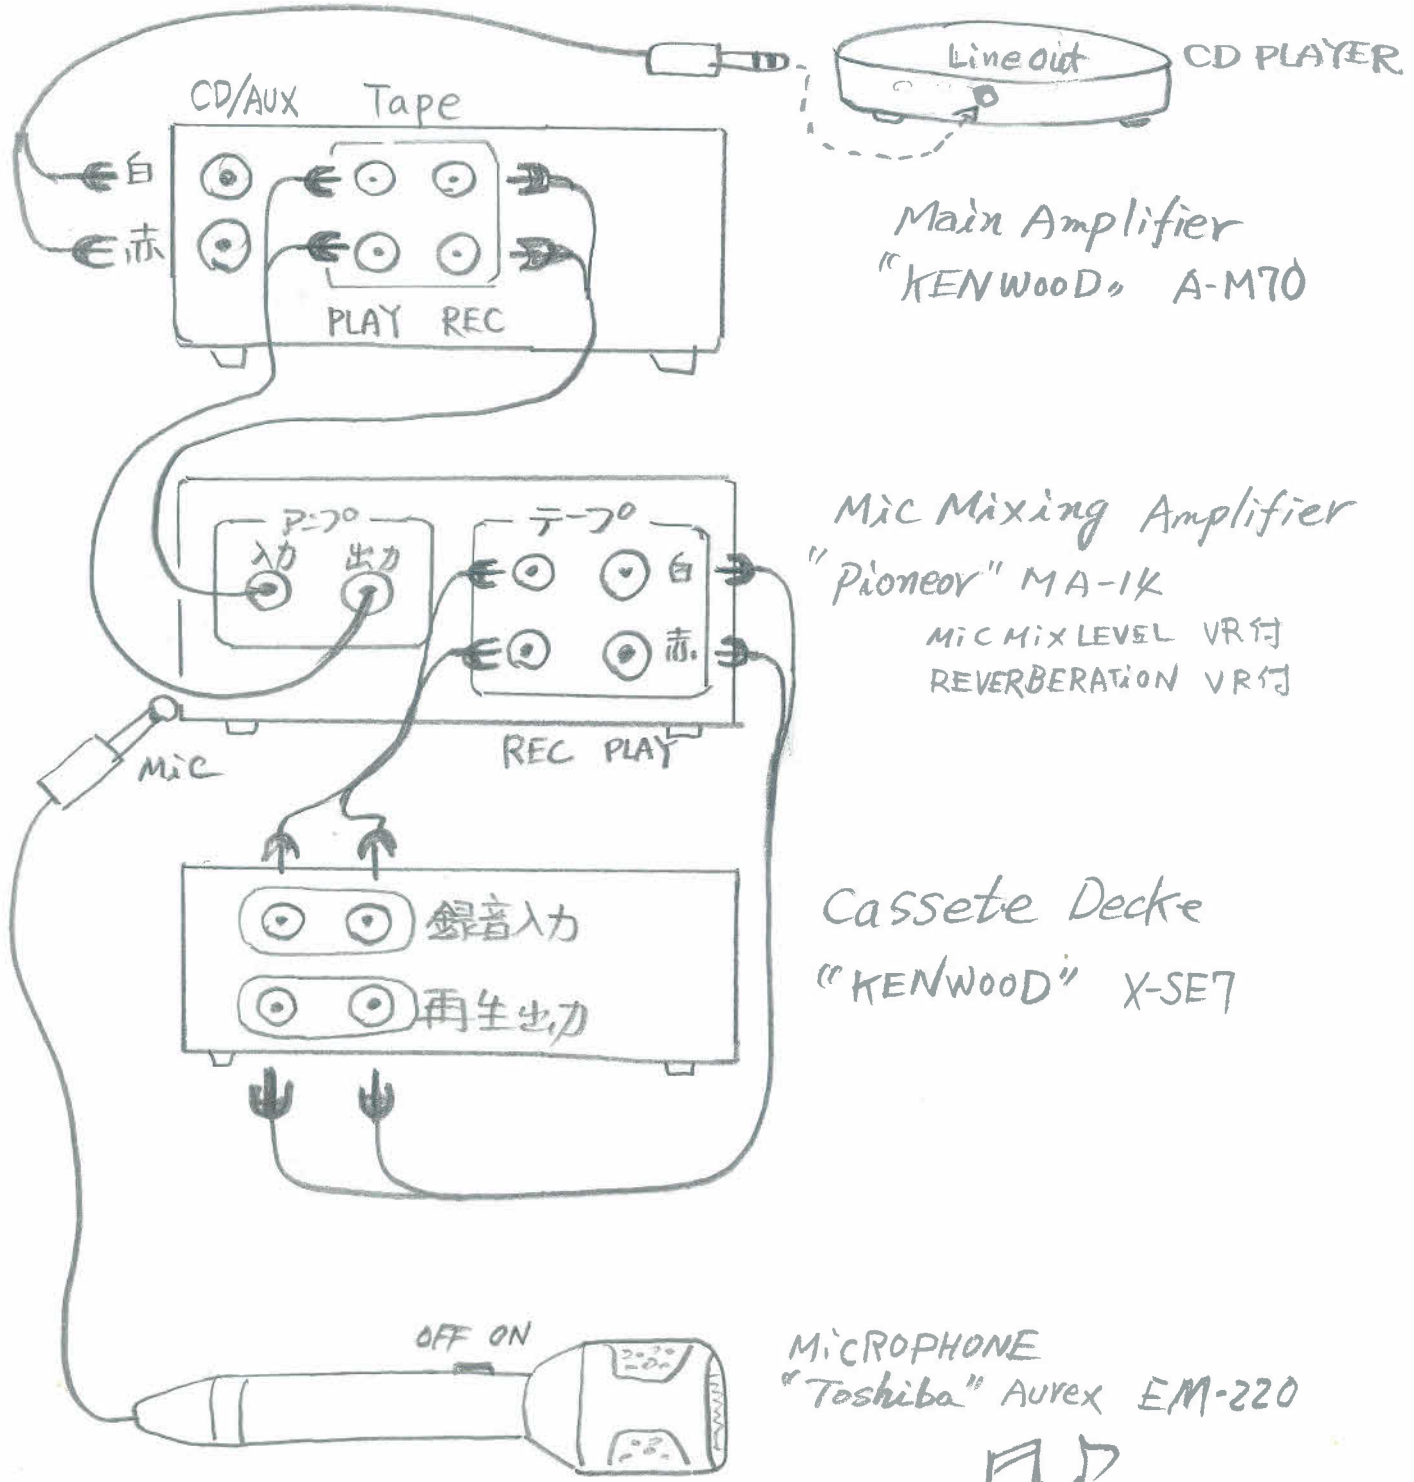 Line out
CD PLAYER
CD/AUX Tape
白
赤
PLAY REC
Main Amplifier
"KENWOOD" A-M70
アンプ
入力 出力
テープ
白
赤
REC PLAY
MiC
Mic Mixing Amplifier
"Pioneor" MA-1K
MiC MiX LEVEL VR付
REVERBERATiON VR付
録音入力
再生出力
Cassete Decke
"KENWOOD" X-SE7
OFF ON
MiCROPHONE
"Toshiba" Aurex EM-220